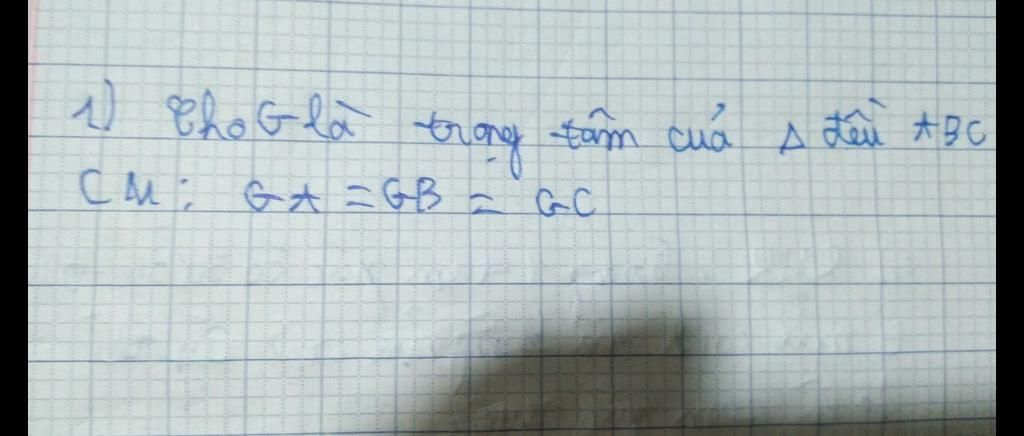 1) Cho G là trọng tâm cuả Δ đều ABC
CM: GA = GB = GC